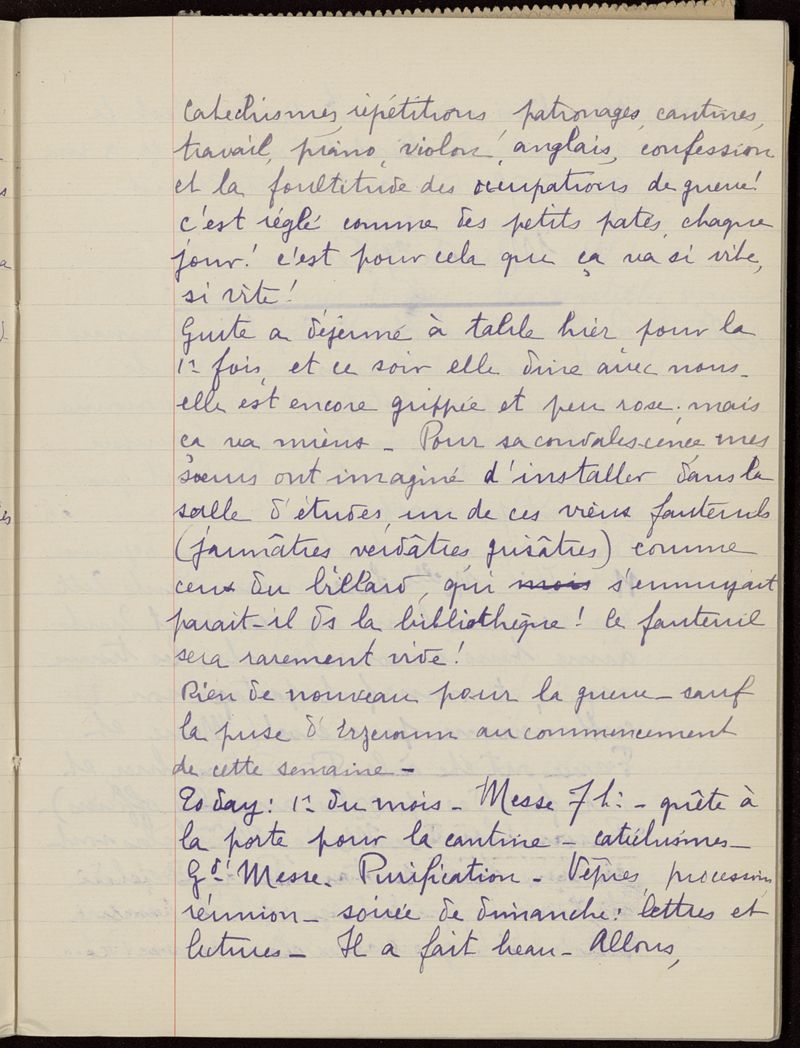 Catechismes, répétitions, patronages, cantines,
travail, piano, violon, anglais, confession
et la foultitude des occupations de guerre!
c'est réglé comme des petits patés, chaque
jour! c'est pour cela que ça va si vite,
si vite!
Guite a déjeuné à table hier, pour la
1re fois, et ce soir elle dine avec nous_
elle est encore grippée et peu rose, mais
ça va mieux _ Pour sa convalescence mes
soeurs ont imaginé d'installer dans la
salle d'études, un de ces vieux fauteuils
(jaunâtres verdâtres grisâtres) comme
ceux du billard, qui mois s'ennuyait
parait-il ds la bibliothèque! le fauteuil
sera rarement vide!
Rien de nouveau pour la guerre _ sauf
la prise d'Erzeroum au commencement
de cette semaine _
To day: 1er du mois _ Messe 7h: _ quête à
la porte pour la cantine _ catéchismes _
Gd' Messe. Purification _ Vêpres processions
réunion _ soirée de dimanche: lettres et
lectures _ Il a fait beau _ Allons,